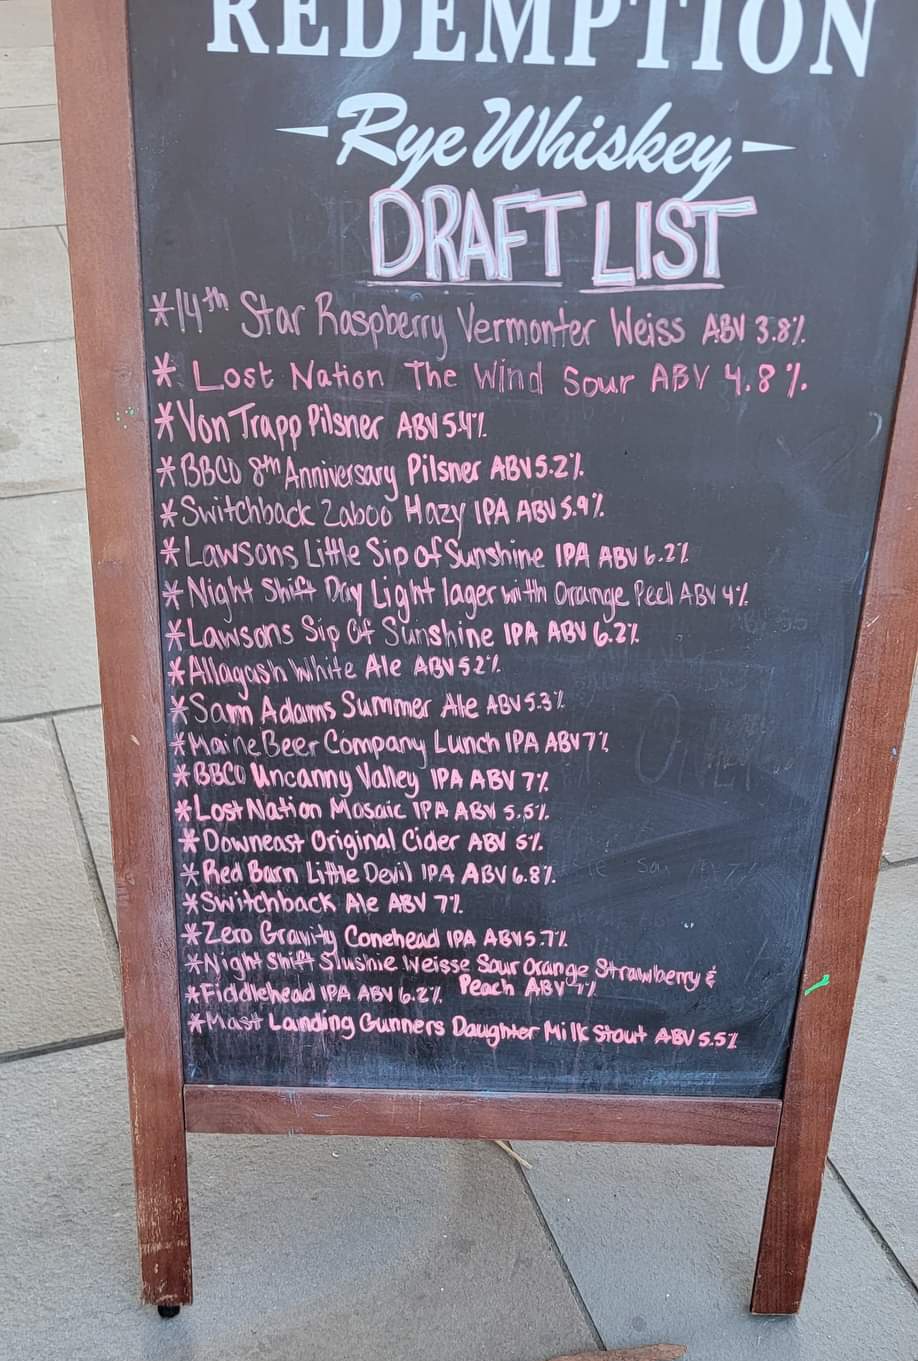 REDEMPTION
Rye Whiskey
DRAFT LIST
*14th Star Raspberry Vermonter Weiss ABV 3.8%
* Lost Nation The Wind Sour ABV 4.8%
*Von Trapp Pilsner ABV 5.4%
*BBCO 8th Anniversary Pilsner ABV 5.2%
*Switchback Zaboo Hazy IPA ABV 5.9%
*Lawsons Little Sip of Sunshine IPA ABV 6.2%
*Night Shift Day Light lager with Orange Peel ABV 4%
*Lawsons Sip Of Sunshine IPA ABV 6.2%
*Allagash White Ale ABV 5.2%
*Sam Adams Summer Ale ABV 5.3%
*Maine Beer Company Lunch IPA ABV 7%
*BBCO Uncanny Valley IPA ABV 7%
*Lost Nation Mosaic IPA ABV 5.5%
*Downeast Original Cider ABV 5%
*Red Barn Little Devil IPA ABV 6.8%
*Switchback Ale ABV 7%
*Zero Gravity Conehead IPA ABV 5.7%
*Night Shift Slushie Weisse Sour Orange Strawberry &
Peach ABV 7%
*Fiddlehead IPA ABV 6.2%
*Mast Landing Gunners Daughter Milk Stout ABV 5.5%